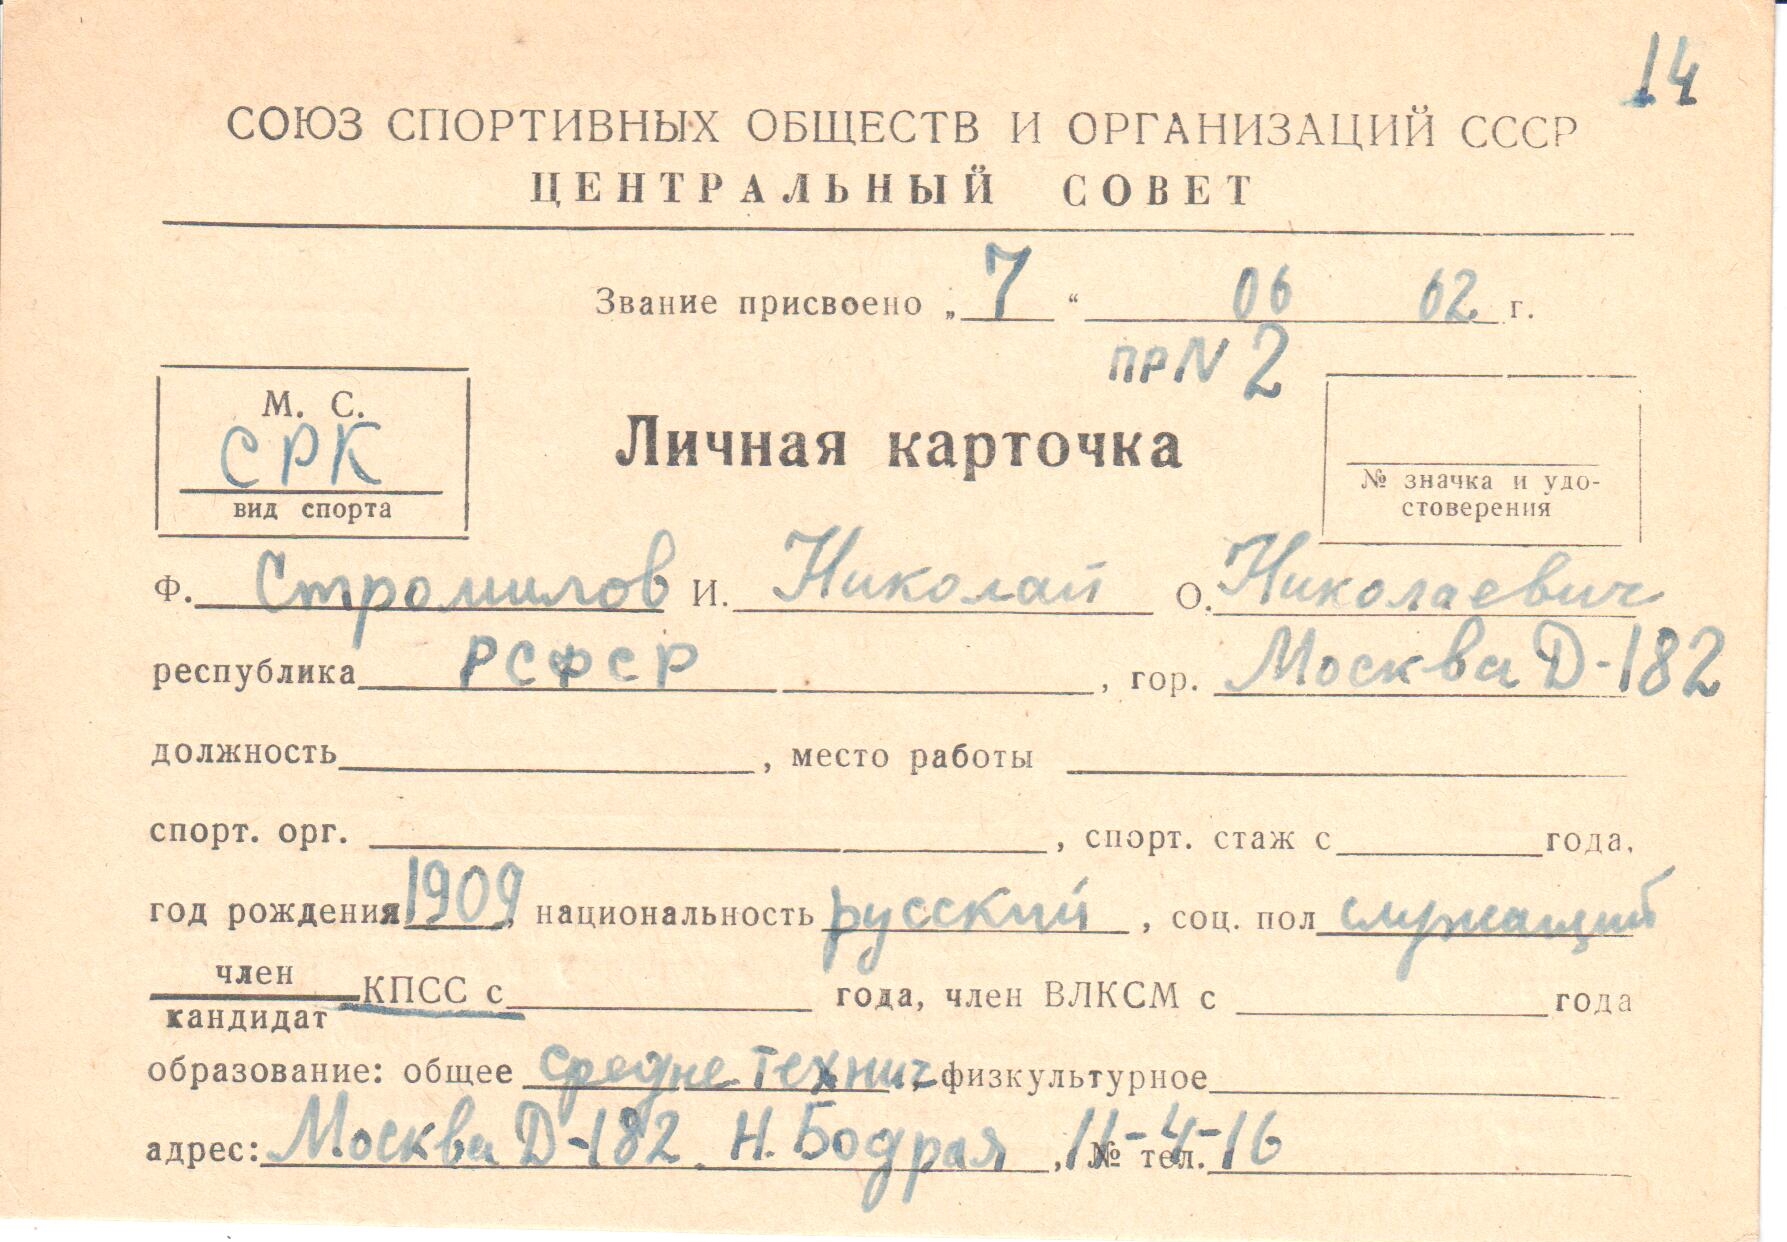 14
СОЮЗ СПОРТИВНЫХ ОБЩЕСТВ И ОРГАНИЗАЦИЙ СССР
ЦЕНТРАЛЬНЫЙ СОВЕТ
Звание присвоено „7“ 06 62 г.
ПР N 2
М. С.
СРК
вид спорта
Личная карточка
№ значка и удо-
стоверения
Ф. Стромилов И. Николай О. Николаевич
республика РСФСР, гор. Москва Д-182
должность , место работы
спорт. орг. , спорт. стаж с года,
год рождения 1909, национальность русский, соц. пол служащий
член
КПСС с года, член ВЛКСМ с года
кандидат
образование: общее средне технич, физкультурное
адрес: Москва Д-182 Н. Бодрая, № тел. 11-4-16